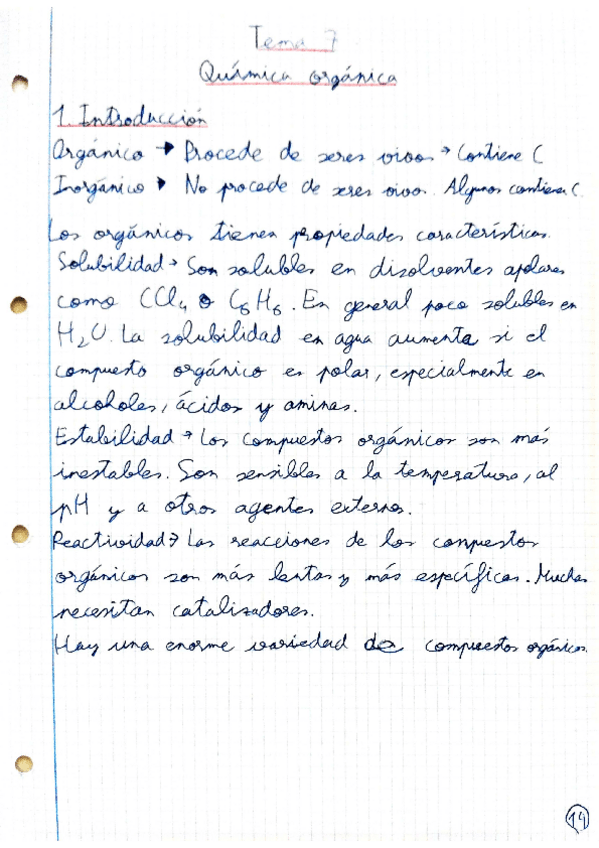 Tema 7
Química orgánica
1. Introducción
Orgánico → Procede de seres vivos → Contiene C
Inorgánico → No procede de seres vivos. Algunos contienen C.
Los orgánicos tienen propiedades características.
Solubilidad → Son solubles en disolventes apolares
como CCl₄ o C₆H₆. En general poco solubles en
H₂O. La solubilidad en agua aumenta si el
compuesto orgánico es polar, especialmente en
alcoholes, ácidos y aminas.
Estabilidad → Los compuestos orgánicos son más
inestables. Son sensibles a la temperatura, al
pH y a otros agentes externos.
Reactividad → Las reacciones de los compuestos
orgánicos son más lentas y más específicas. Muchas
necesitan catalizadores.
Hay una enorme variedad de compuestos orgánicos.
14